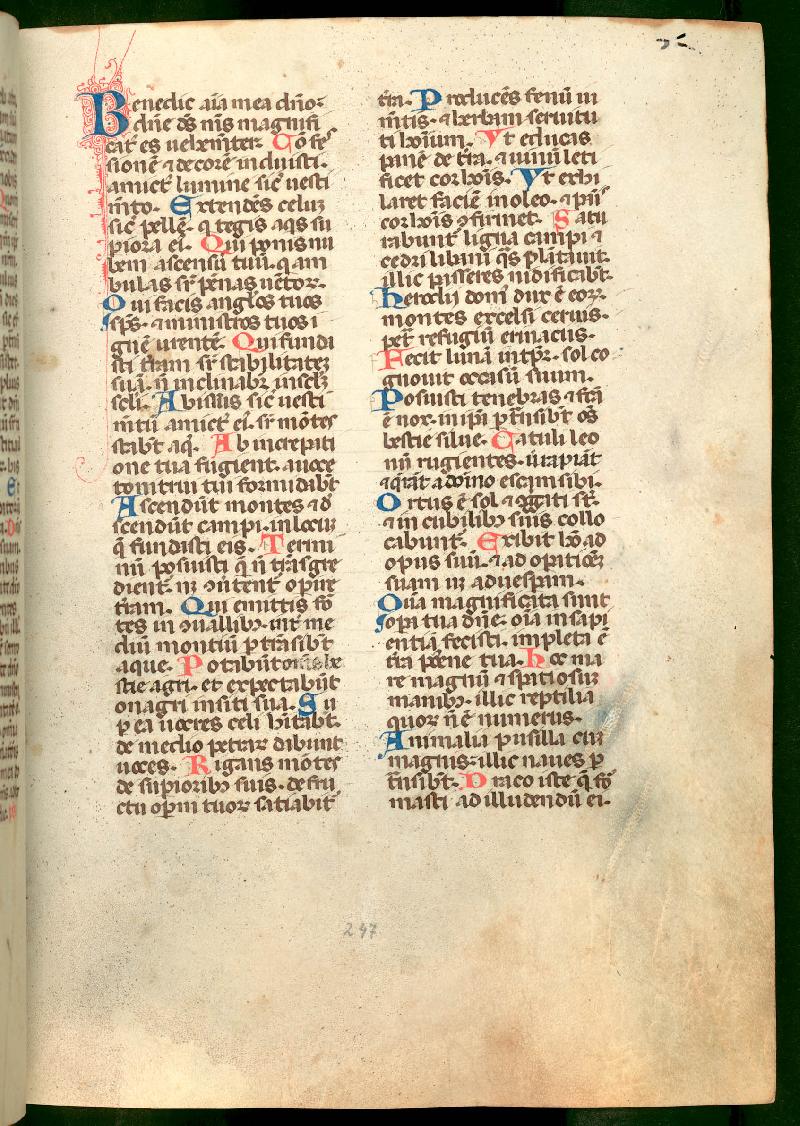 Benedic aīa mea dn̄o:
dn̄e ds̄ ms̄ magnifi
cat es uehem̄ter. Cōfes
sionē ⁊ decorē induisti.
amict lumine sic̄ uesti
m̄to. Extendēs celuꝫ
sic̄ pellē. q tegis aqs su
piora ei. Qui ponis nu
bem ascensū tuū. q am
bulas sr̄ pēnas uētoꝝ.
Qui facis angl̄os tuos
sps̄. ⁊ ministros tuos i
gnē urentē. Qui funda
sti t̄ram sr̄ stabilitateꝫ
suā. n̄ inclinabr̄ in sc̄lꝫ
sc̄li. Abissus sic̄ uesti
m̄tū amict ei. sr̄ mōtes
stabūt aq̄. Ab increpati
one tua fugient. a uoce
tonitrui tui formidabūt
Ascendūt montes ⁊ d̄
scendūt campi. in locuꝫ
q̄ fundasti eis. Termi
nū posuisti q̄ n̄ trāsgre
dient. neꝫ ꝯūtent opire
t̄ram. Qui emittis fō
tes in ꝯuallibꝫ. int̄ me
diū montiū ptrāsibūt
aque. Potabūt
stie agri. et expectabūt
onagri in siti sua. Su
p ea uolcres celi hītabt.
de medio petraꝝ dabunt
uoces. Rigans mōtes
de supioribꝫ suis. de fru
ctu opm̄ tuoꝝ satiabit̄
t̄ra. Producēs fenū iu
m̄tis. ⁊ herbam seruitu
ti hoīum. Vt educas
panē de t̄ra. ⁊ uinū leti
ficet cor hoīs. Vt exhi
laret faciē in oleo. ⁊ pāis
cor hoīs ꝯfirmet. Satu
rabunt ligna campi ⁊
cedri libani q̄s plātauit.
illic passeres nidificabt.
herodij dom̄ dux ē eoꝝ.
montes excelsi ceruis.
pet̄ refugiū erinacijs.
Fecit lunā in tpr̄. sol co
gnouit occasū suum.
Posuisti tenebras ⁊ fc̄a
ē nox. in ip̄a ptrāsibt os̄
bestie silue. Catuli leo
nū rugientes. ut rapiāt
⁊ q̄rāt a dōino escam sibi.
Ortus ē sol ⁊ ꝯgati st̄.
⁊ in cubilibꝫ suis collo
cabunt̄. Exibit hō ad
opus suū. ⁊ ad opationeꝫ
suam usꝫ ad uespam.
Quā magnificata sunt
opa tua dn̄e. oīa in sapi
entia fecisti. impleta ē
t̄ra poss̄ene tua. hoc ma
re magnū ⁊ spatiosuꝫ
manibꝫ. illic reptilia
quoꝝ n̄ ē numerus.
Animalia pusilla cuꝫ
magnis: illic naues p
t̄nsibt. Draco iste q̄ for
masti ad illudendū ei.
247